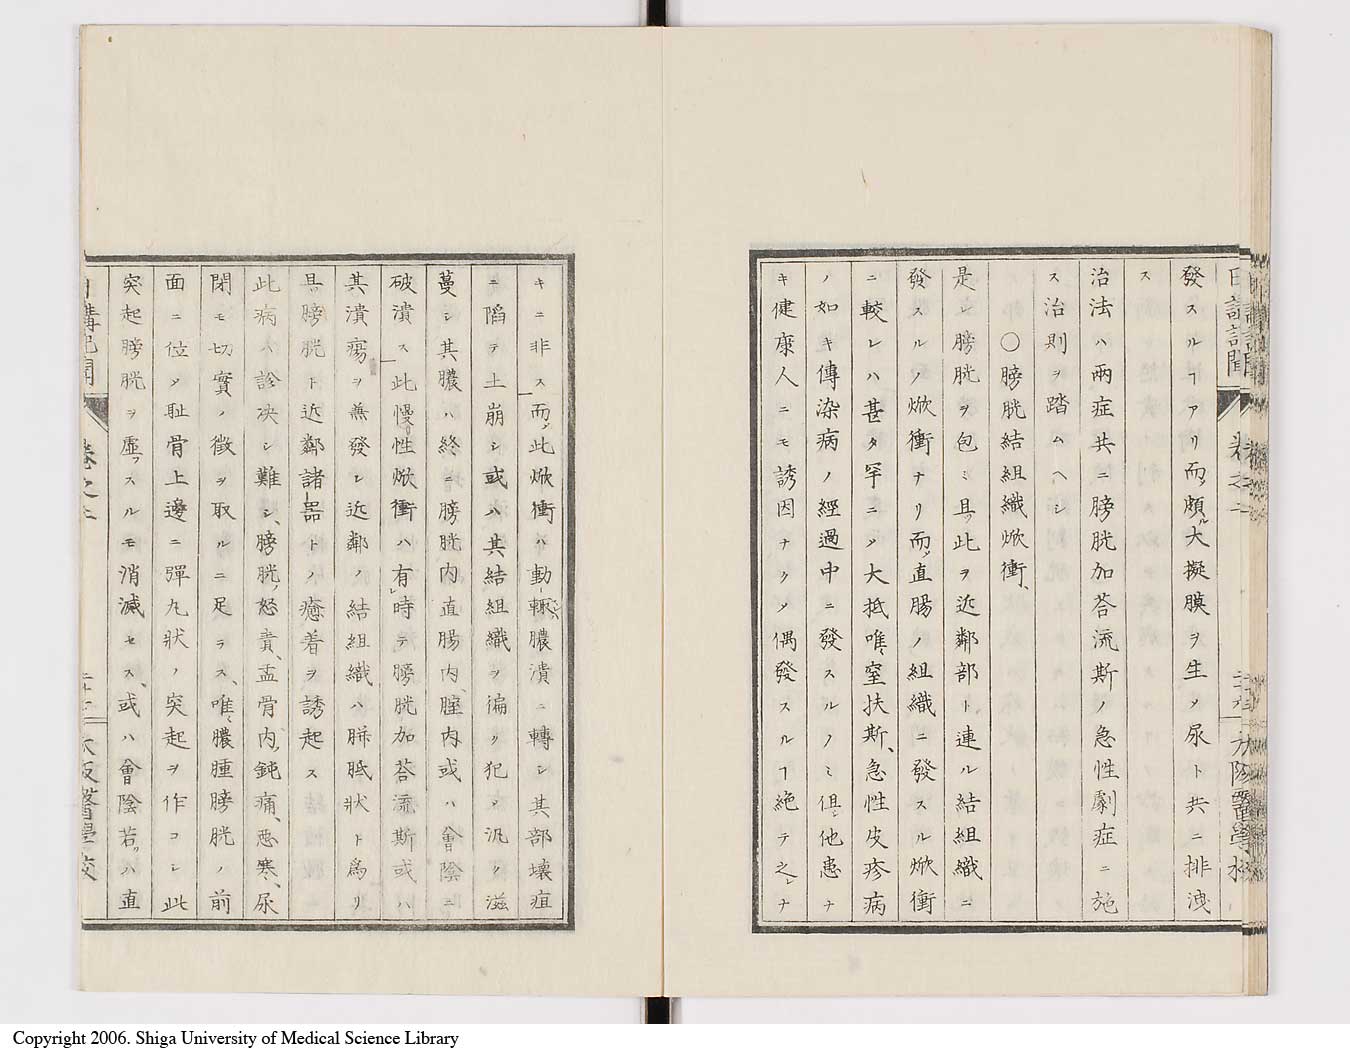 日講記聞 卷之二
發スルヿアリ而ノ頗ル大擬膜ヲ生シ尿ト共ニ排洩
ス
治法ハ兩症共ニ膀胱加荅流斯ノ急性劇症ニ施
ス治則ヲ踏ムヘシ
〇膀胱結組織焮衝、
是レ膀胱ヲ包ミ且ツ此ヲ近鄰部ト連ル結組織ニ
發スルノ焮衝ナリ而ノ直腸ノ組織ニ發スル焮衝
ニ較レハ甚タ罕ニノ大抵唯窒扶斯、急性皮疹病
ノ如キ傳染病ノ經過中ニ發スルノミ但シ他患ナ
キ健康人ニモ誘因ナクノ偶發スルヿ絶テ之レナ
キニ非ス而ノ此焮衝ハ動輙膿潰ニ轉シ其部壊疽
ニ䧟テ土崩シ或ハ其結組織ヲ徧ク犯シ汎ク滋
蔓シ其膿ハ終ニ膀胱内直腸内、腟内或ハ會陰ニ
破潰ス此慢性焮衝ハ有時テ膀胱加荅流斯或ハ
其潰瘍ヲ兼發シ近鄰ノ結組織ハ胼胝狀ト爲リ
且膀胱ト近鄰諸器トノ癒着ヲ誘起ス
此病ハ診决シ難シ、膀胱ノ怒責、盂骨内ノ鈍痛、惡寒、尿
閉モ切實ノ徴ヲ取ルニ足ラス、唯膿腫膀胱ノ前
面ニ位シ耻骨上邊ニ彈丸狀ノ突起ヲ作コシ此
突起膀胱ヲ虛フスルモ消滅セス、或ハ會陰若クハ直
日講記聞 卷之二 大阪醫學校
Copyright 2006. Shiga University of Medical Science Library